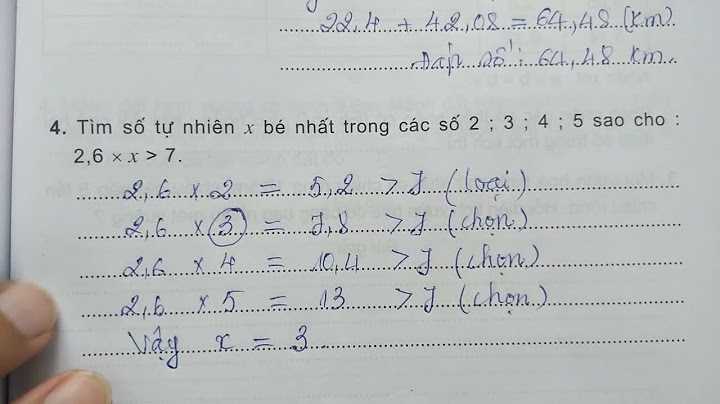 22,4 + 42,08 = 64,48 (km)
Đáp số: 64,48 km.
4. Tìm số tự nhiên x bé nhất trong các số 2 ; 3 ; 4 ; 5 sao cho :
2,6 × x > 7.
2,6 × 2 = 5,2 > 7 (loại)
2,6 × 3 = 7,8 > 7 (chọn)
2,6 × 4 = 10,4 > 7 (chọn)
2,6 × 5 = 13 > 7 (chọn)
Vậy x = 3